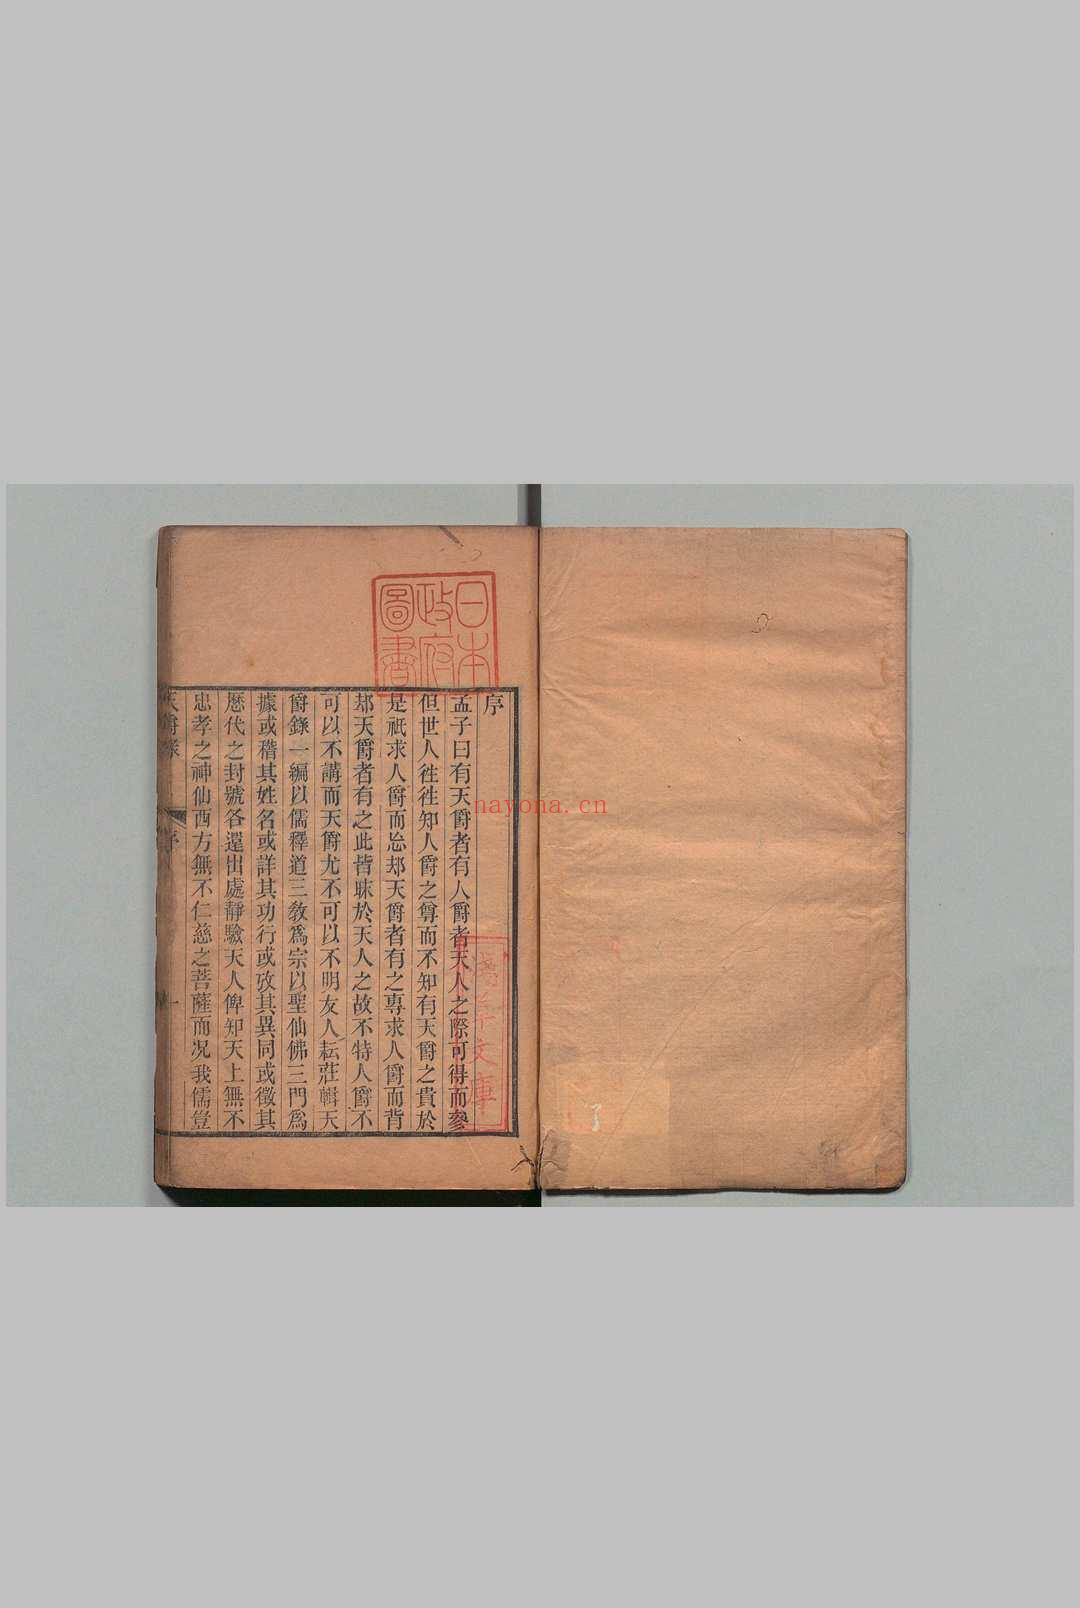 序
孟子曰有天爵者有人爵者天人之際可得而參
但世人徃徃知人爵之尊而不知有天爵之貴於
是祇求人爵而忘却天爵者有之專求人爵而背
却天爵者有之此皆昧於天人之故不特人爵不
可以不講而天爵尤不可以不明友人耘莊輯天
爵錄一編以儒釋道三敎爲宗以聖仙佛三門爲
據或稽其姓名或詳其功行或攷其異同或徵其
歷代之封號各還出處靜驗天人俾知天上無不
忠孝之神仙西方無不仁慈之菩薩而况我儒豈
天爵錄
序
一
日本
政府
圖書
文庫
nayona.cn